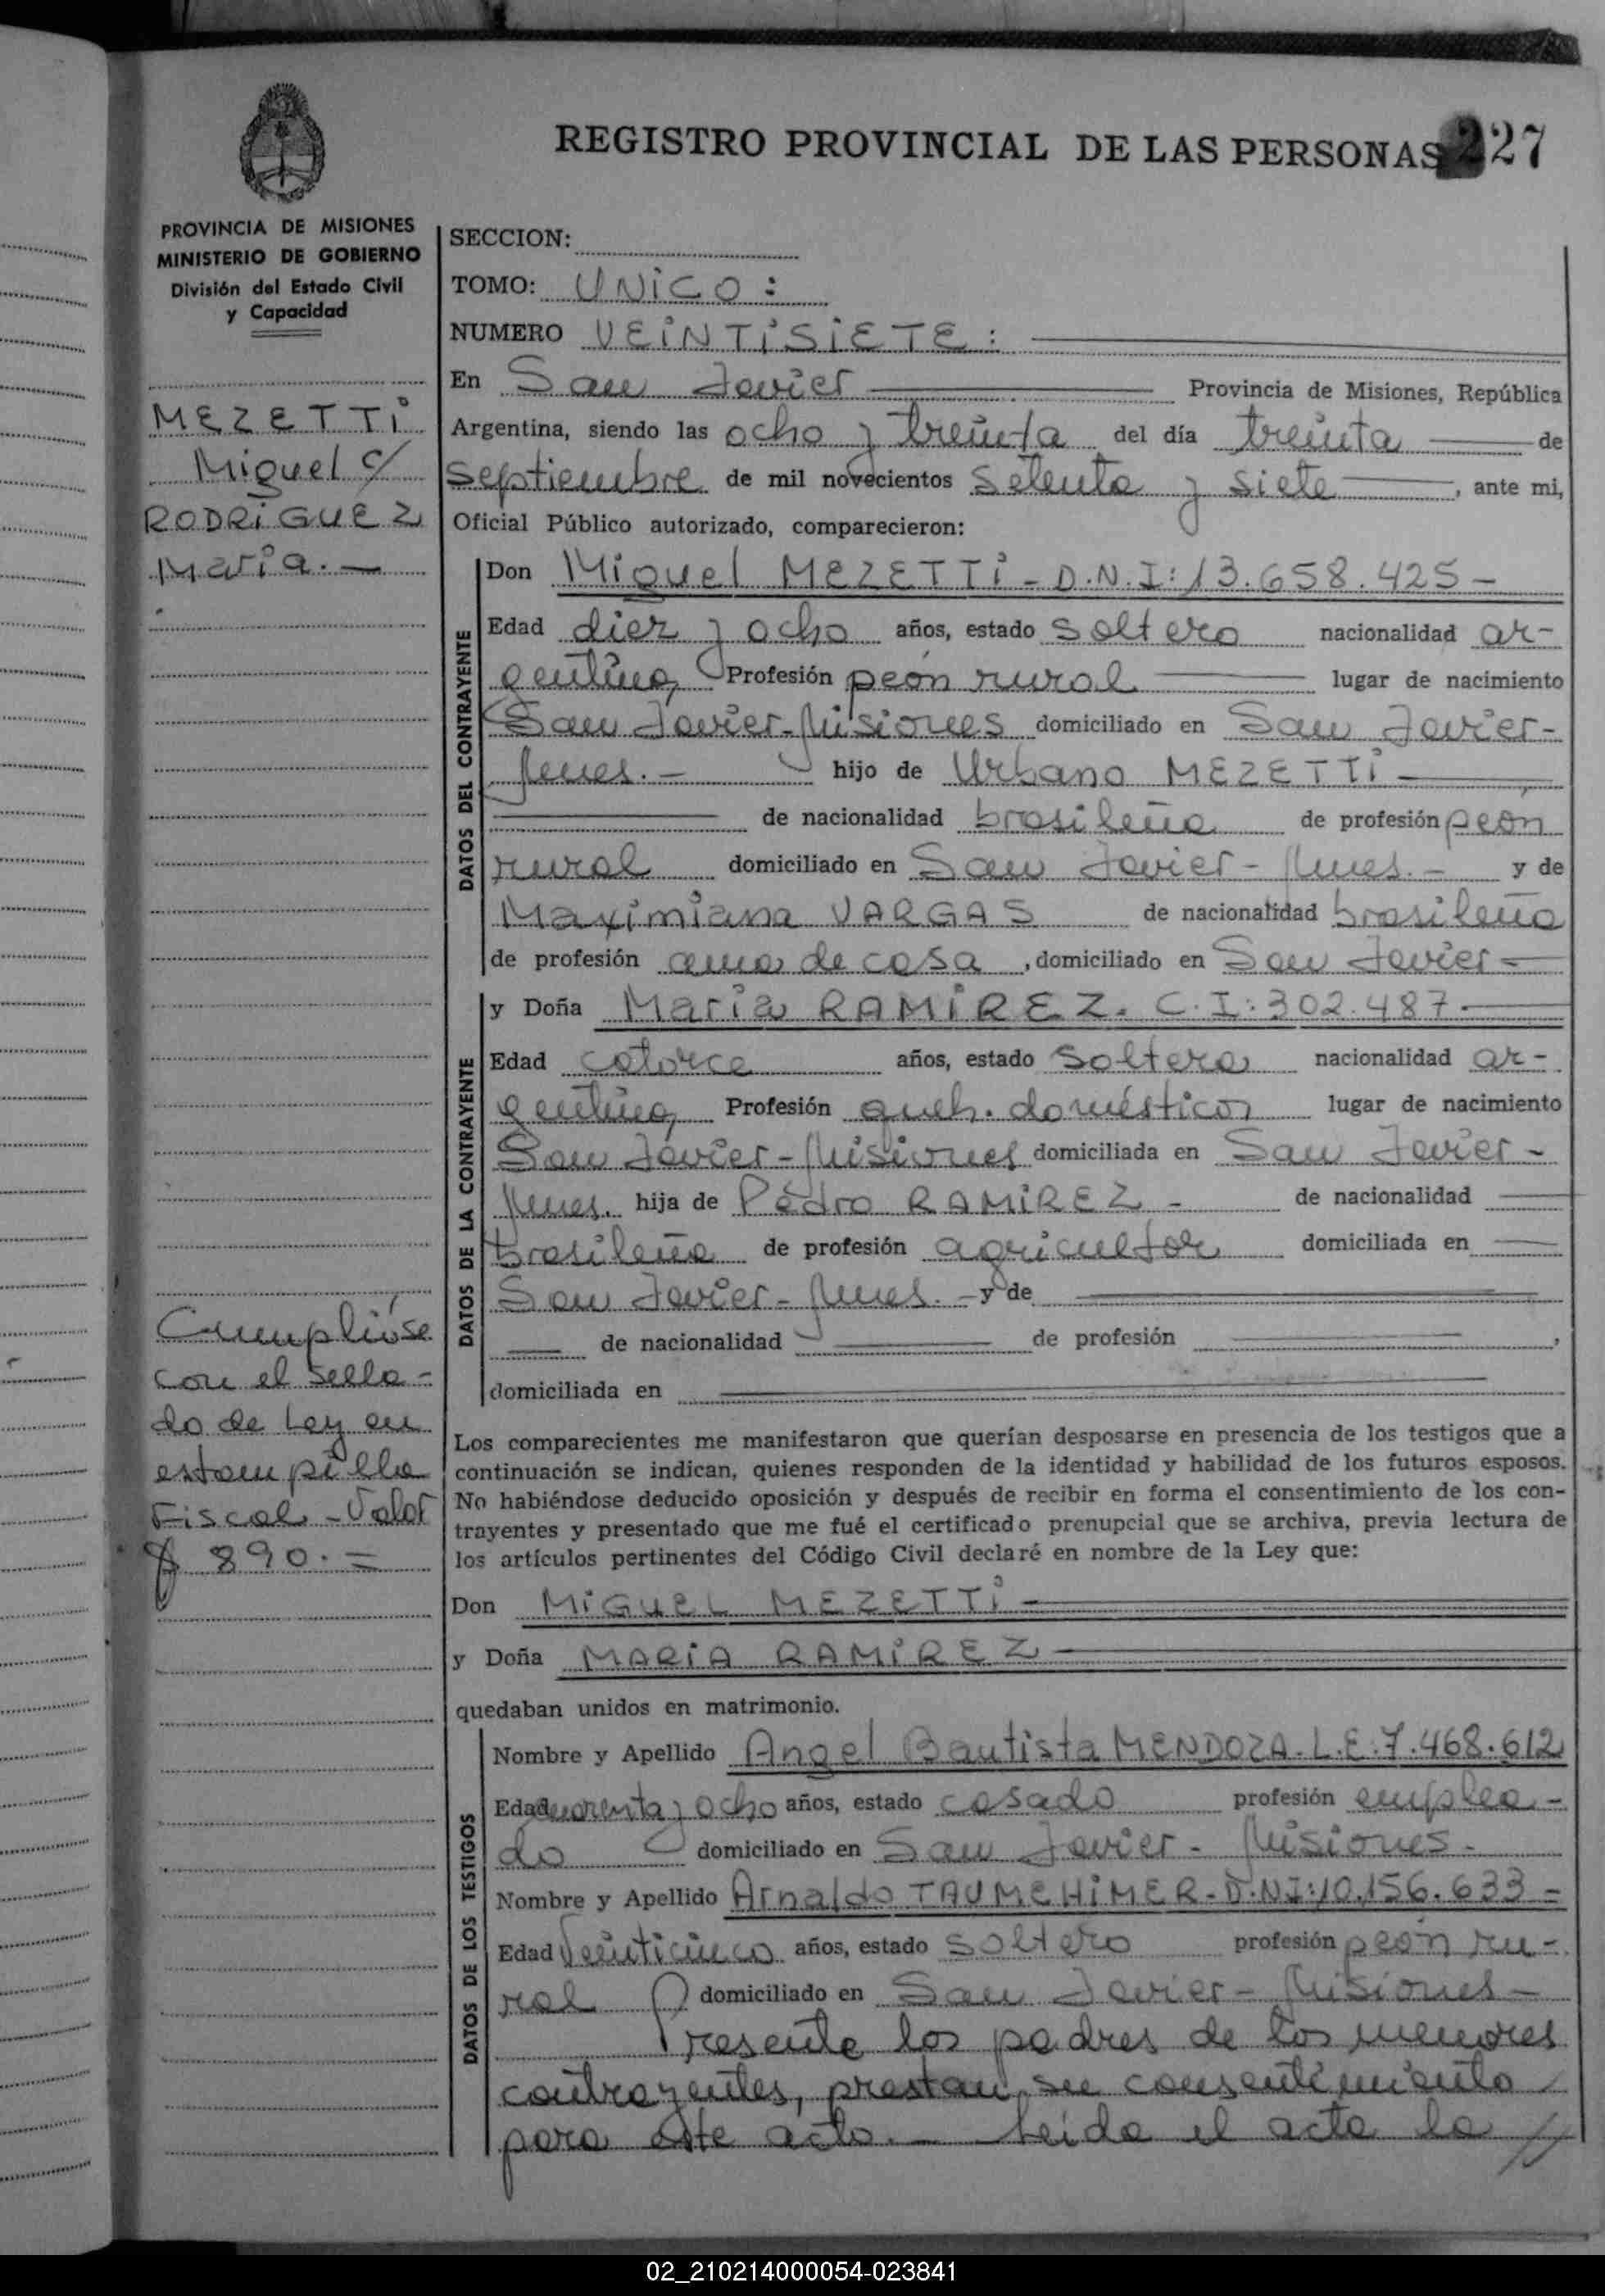 REGISTRO PROVINCIAL DE LAS PERSONAS 227
PROVINCIA DE MISIONES
MINISTERIO DE GOBIERNO
División del Estado Civil
y Capacidad
MEZETTI
Miguel c/
RODRIGUEZ
Maria.-
Cumplióse
con el sella-
do de Ley en
estampilla
Fiscal - Valor
$ 890.=
SECCION:
TOMO: UNICO:
NUMERO VEINTISIETE:
En San Javier Provincia de Misiones, República
Argentina, siendo las ocho y treinta del día treinta de
septiembre de mil novecientos setenta y siete, ante mi,
Oficial Público autorizado, comparecieron:
DATOS DEL CONTRAYENTE
Don Miguel MEZETTI - D.N.I: 13.658.425-
Edad diez y ocho años, estado soltero nacionalidad ar-
gentina, Profesión peón rural lugar de nacimiento
San Javier-Misiones domiciliado en San Javier-
Mnes.- hijo de Urbano MEZETTI-
de nacionalidad brasileña de profesión peón
rural domiciliado en San Javier-Mnes.- y de
Maximiana VARGAS de nacionalidad brasileña
de profesión ama de casa, domiciliado en San Javier-
DATOS DE LA CONTRAYENTE
y Doña Maria RAMIREZ. C.I: 302.487.-
Edad catorce años, estado soltera nacionalidad ar-
gentina, Profesión queh. domésticos lugar de nacimiento
San Javier-Misiones domiciliada en San Javier-
Mnes. hija de Pedro RAMIREZ - de nacionalidad
brasileña de profesión agricultor domiciliada en
San Javier-Mnes. - y de
de nacionalidad de profesión ,
domiciliada en
Los comparecientes me manifestaron que querían desposarse en presencia de los testigos que a
continuación se indican, quienes responden de la identidad y habilidad de los futuros esposos.
No habiéndose deducido oposición y después de recibir en forma el consentimiento de los con-
trayentes y presentado que me fué el certificado prenupcial que se archiva, previa lectura de
los artículos pertinentes del Código Civil declaré en nombre de la Ley que:
Don MIGUEL MEZETTI-
y Doña MARIA RAMIREZ
quedaban unidos en matrimonio.
DATOS DE LOS TESTIGOS
Nombre y Apellido Angel Bautista MENDOZA. L.E: 7.468.612
Edad cuarenta y ocho años, estado casado profesión emplea-
do domiciliado en San Javier - Misiones-
Nombre y Apellido Arnaldo TAUMEHIMER- D.N.I: 10.156.633-
Edad Veinticinco años, estado soltero profesión peón ru-
ral domiciliado en San Javier-Misiones-
Presente los padres de los menores
contrayentes, prestan su consentimiento
para este acto.- Leida el acta la //
02_210214000054-023841